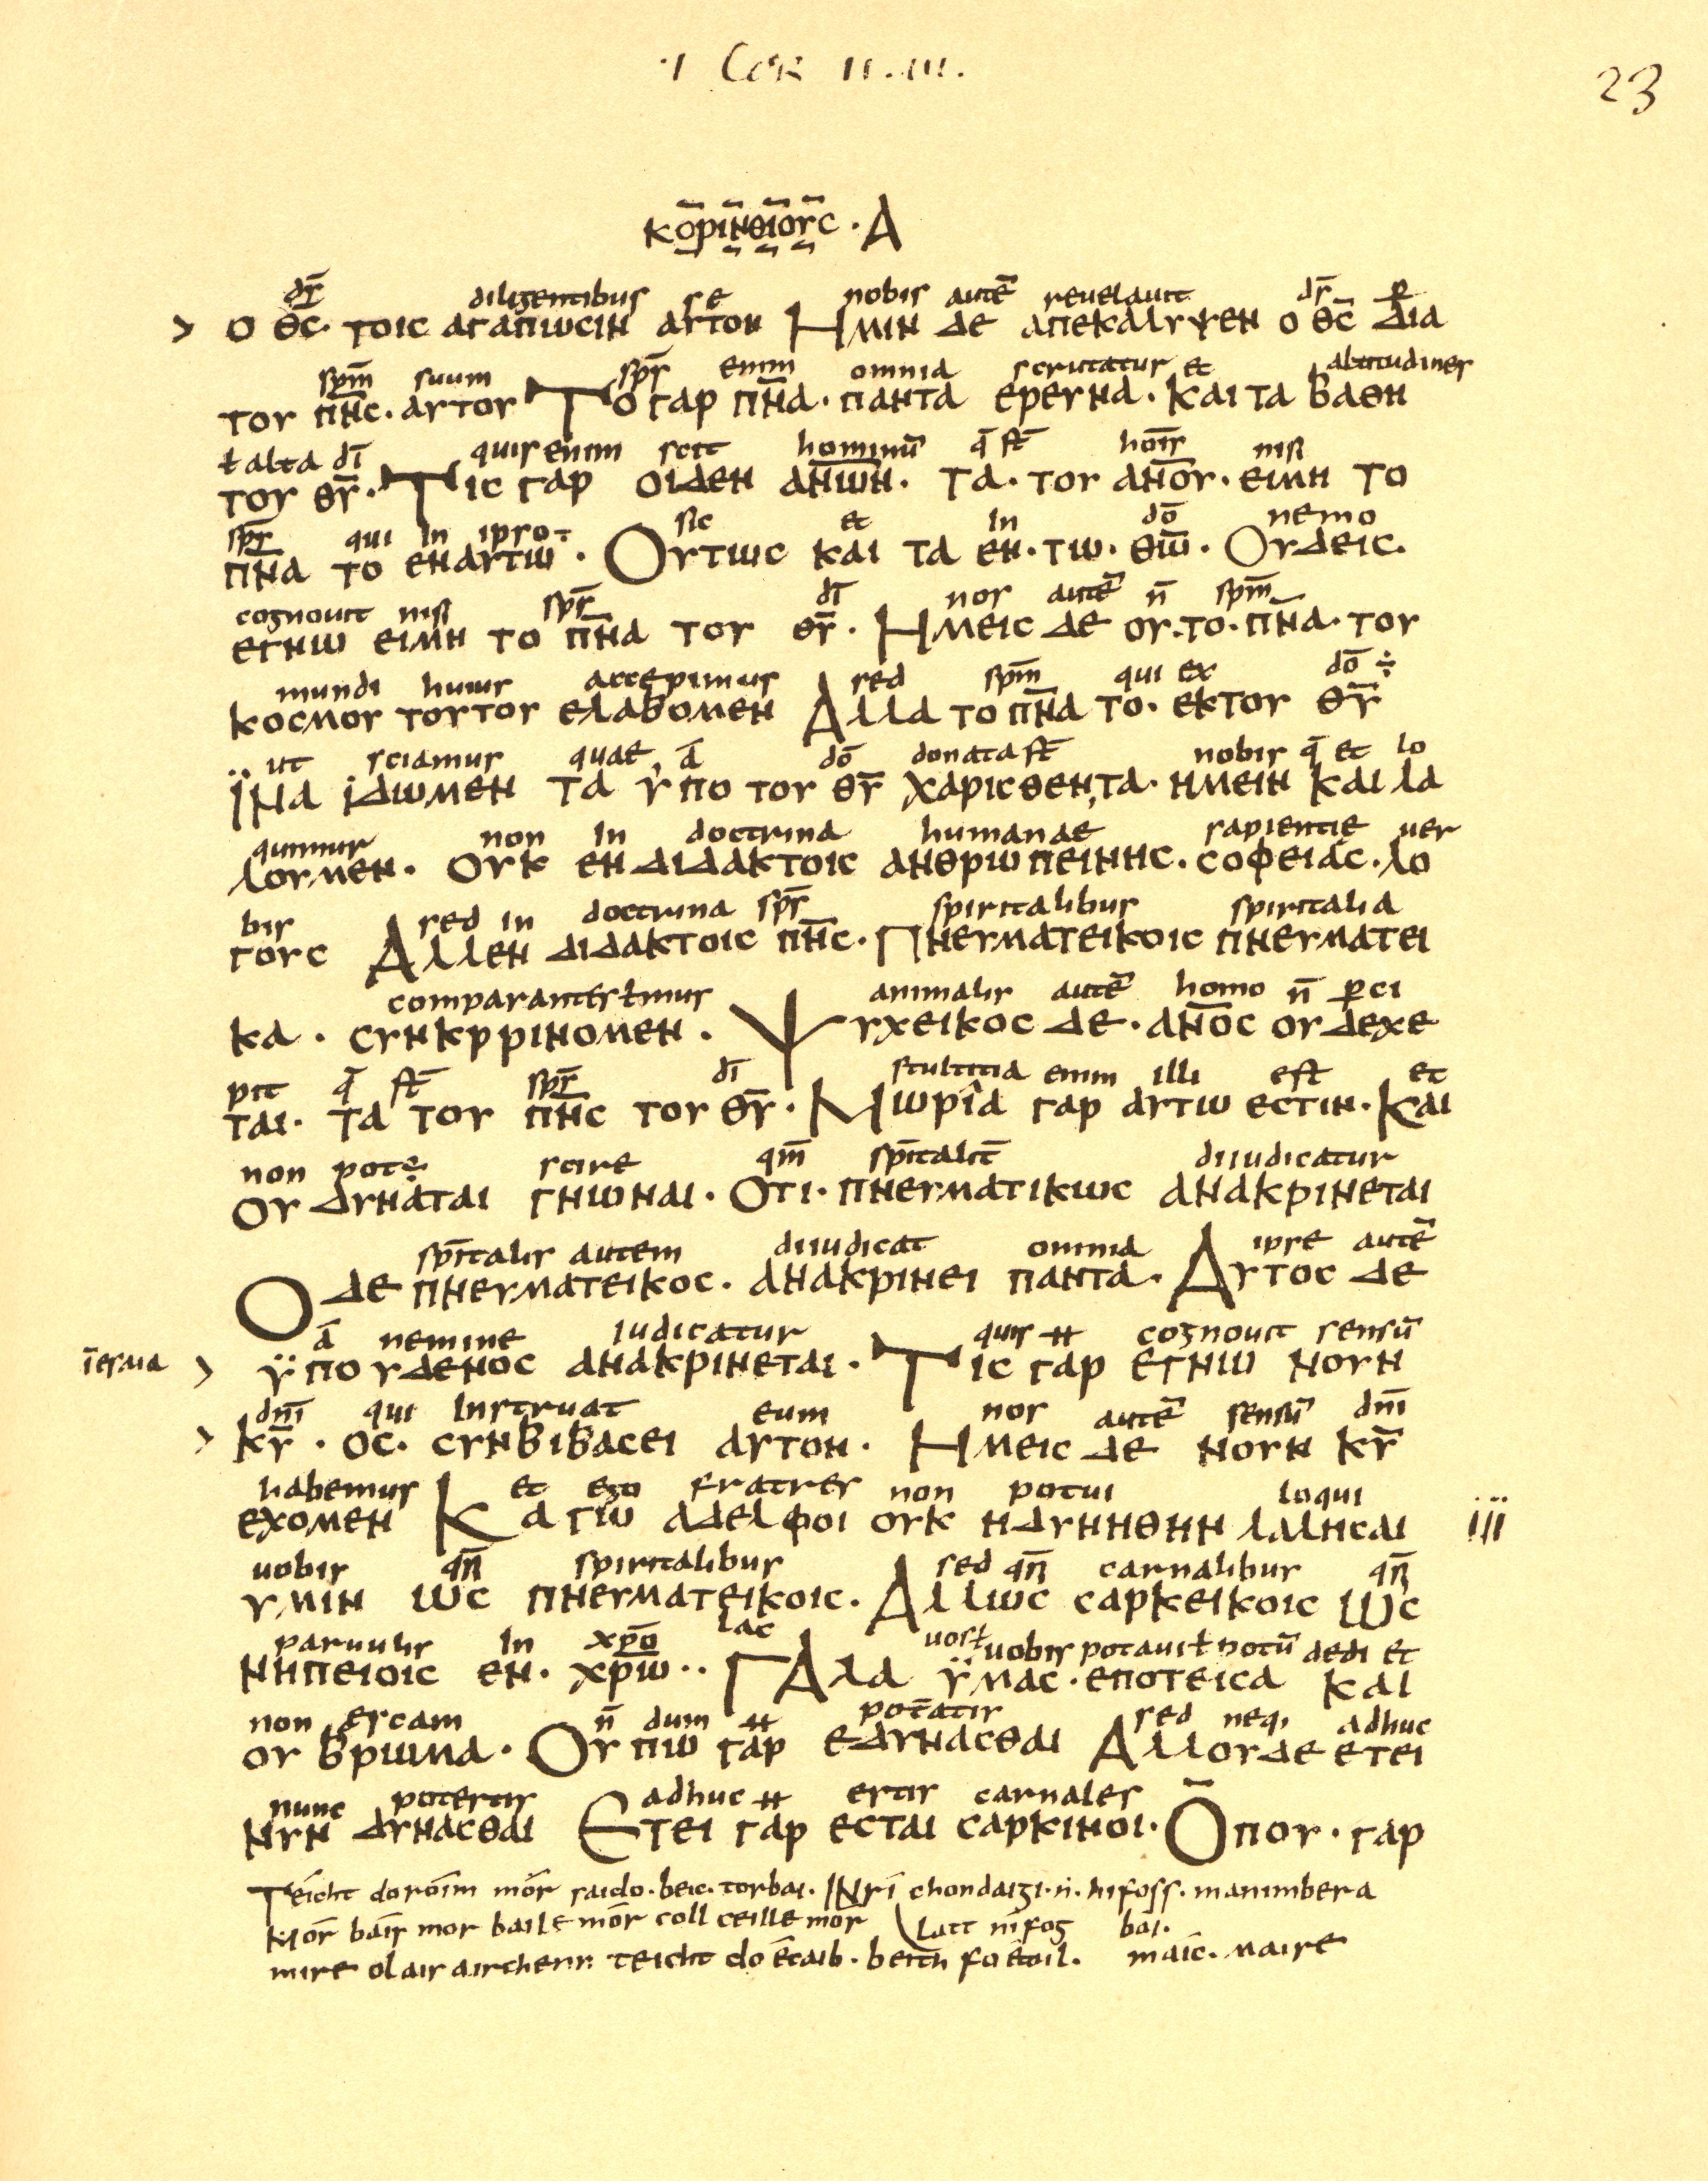 ·I Cor II.III.
23
κορινθιους · Α
d̄s diligentibus se nobis autē reuelauit d̄s ꝑ
> ο θ̄ς̄· τοις αγαπωσιν αυτον Ημιν δε απεκαλυψεν ο θ̄ς̄ δια
sp̄m suum sp̄s enim omnia scrutatur et altitudines
του π̄ν̄ς̄· αυτου Το γαρ π̄ν̄α· παντα ερευνα· και τα βαθη
ł alta dī quis enim scit hominū q̄ s̄t hōis nisi
του θ̄ῡ· Τις γαρ οιδεν αν̄ων̄· τα· του αν̄ου· ειμη το
sp̄s qui in ipso÷ sic et in dō nemo
π̄ν̄α το εναυτω· Ουτως και τα εν· τω· θ̄ω̄· Ουδεις·
cognouit nisi sp̄s dī nos autē n̄ sp̄m
εγνω ειμη το π̄ν̄α του θ̄ῡ· Ημεις δε ου·το·π̄ν̄α· του
mundi huius accepimus sed sp̄m qui ex dō ÷
κοσμου τουτου ελαβομεν Αλλα το π̄ν̄α το· εκτου θ̄ῡ
ut sciamus quae ā dō donata s̄t nobis q̄ et lo
ϊνα ιδωμεν τα υπο του θ̄ῡ χαρισθεντα· ημειν και λα
quimur non in doctrina humanae sapientie uer
λουμεν· ουκ εν διδακτοις ανθρωπεινης· σοφειας· λο
bis sed in doctrina sp̄s spiritalibus spiritalia
γους Αλλεν διδακτοις π̄ν̄ς̄· Πνευματεικοις πνευματει
comparantes ł imus animalis autē homo n̄ ꝑci
κα · συνκρρινομεν· Ψυχεικος δε· αν̄ος ου δεχε
pit q̄ s̄t sp̄s dī stultitia enim illi est et
ται· τα του π̄ν̄ς̄ του θ̄ῡ· Μωρια γαρ αυτω εστιν· Και
non pot÷ scire qm̄ sp̄italit̄ diiudicatur
ου δυναται γνωναι· Οτι· πνευματικως ανακρινεται
sp̄italis autem diiudicat omnia ipse autē
Ο δε πνευματεικος· ανακρινει παντα· Αυτος δε
ā nemine iudicatur quis ǂ cognouit sensū
īesaia > ϋπουδενος ανακρινεται· Τις γαρ εγνω νουν
dn̄i qui instruat eum nos autē sensū dn̄i
> κ̄ῡ · ος· συνβιβασει αυτον· Ημεις δε νουν κ̄ῡ
habemus et ego fratres non potui loqui
εχομεν Καγω αδελφοι ουκ ηδυνηθην λαλησαι iii
uobis qn̄ spiritalibus sed qn̄ carnalibus qn̄
υμιν ως πνευματεικοις· Αλλως σαρκεικοις Ως
paruulis in xp̄o lac uos ł uobis potaui ł potū dedi et
νηπειοις εν· χρ̄ω·· ΓΑλα ϋμας·εποτεισα και
non escam n̄ dum ǂ potēatis sed neq, adhuc
ου βρωμα· Ουπω γαρ εδυνασθαι Αλλουδε ετει
nunc potestis adhuc ǂ estis carnales
νυν δυνασθαι Ετει γαρ εσται σαρκινοι· Οπου· γαρ
Teicht doróim mór saido·beic·torbai· INrí chondaigi·n·hifoss·manimbera
Mór báis mor baile mór coll ceille mór latt nífog bai·
mire olais airchenn teicht do écaib·beith fo étoil· maíc·maire